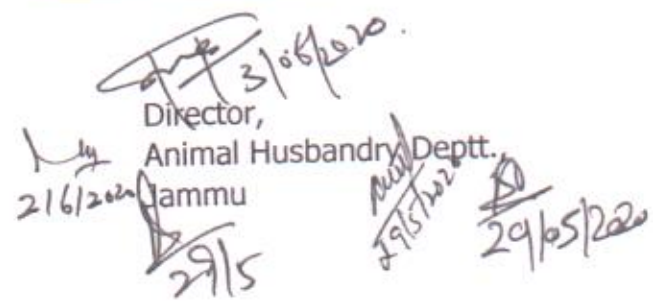 3/06/2020.
Director,
Animal Husbandry Deptt.,
2/6/2020 Jammu
29/5
29/5/2020
29/05/2020